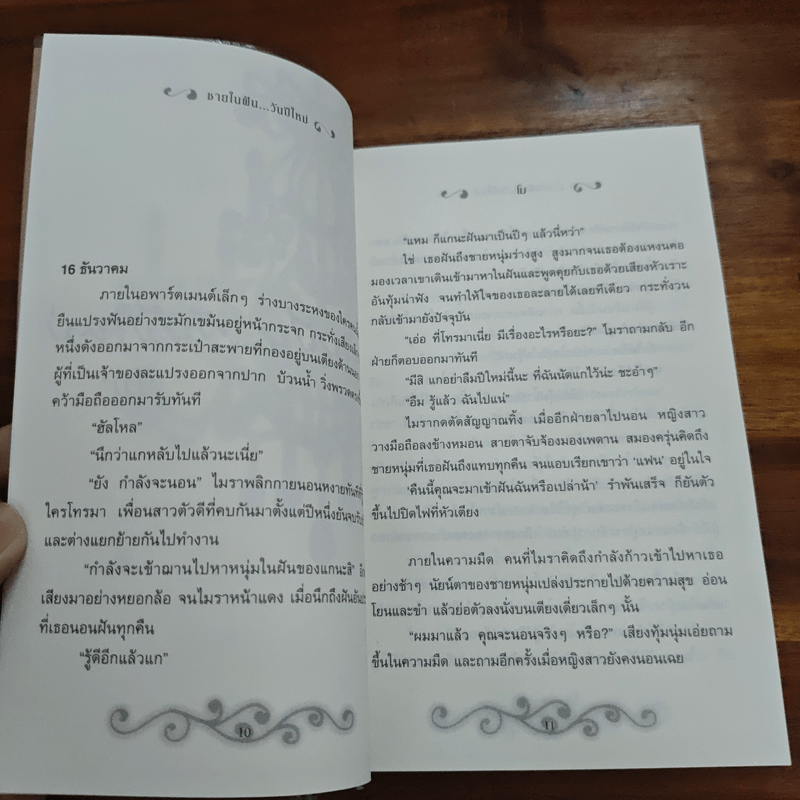 ชายในฝัน...วันปีใหม่
16 ธันวาคม
ภายในอพาร์ตเมนต์เล็กๆ ร่างบางระหงของใครคนหนึ่ง
ยืนแปรงฟันอย่างขะมักเขม้นอยู่หน้ากระจก กระทั่งเสียง
หนึ่งดังออกมาจากกระเป๋าสะพายที่กองอยู่บนเตียงด้าน
ผู้ที่เป็นเจ้าของละแปรงออกจากปาก บ้วนน้ำ วิ่งพรวด
คว้ามือถือออกมารับทันที
“ฮัลโหล”
“นึกว่าแกหลับไปแล้วนะเนี่ย”
“ยัง กำลังจะนอน” ไมราพลิกกายนอนหงายทันทีที่
ใครโทรมา เพื่อนสาวตัวดีที่คบกันมาตั้งแต่ปีหนึ่งยันจบ
และต่างแยกย้ายกันไปทำงาน
“กำลังจะเข้าฌานไปหาหนุ่มในฝันของแกนะสิ”
เสียงมาอย่างหยอกล้อ จนไมราหน้าแดง เมื่อนึกถึงฝัน
ที่เธอนอนฝันทุกคืน
“รู้ดีอีกแล้วแก”
10
โม
“แหม ก็แกนะฝันมาเป็นปีๆ แล้วนี่หว่า”
ใช่ เธอฝันถึงชายหนุ่มร่างสูง สูงมากจนเธอต้องแหงนคอ
มองเวลาเขาเดินเข้ามาหาในฝันและพูดคุยกับเธอด้วยเสียงหัวเราะ
อันทุ้มน่าฟัง จนทำให้ใจของเธอละลายได้เลยทีเดียว กระทั่งวน
กลับเข้ามายังปัจจุบัน
“เอ่อ ที่โทรมาเนี่ย มีเรื่องอะไรหรือยะ?” ไมราถามกลับ อีก
ฝ่ายก็ตอบออกมาทันที
“มีสิ แกอย่าลืมปีใหม่นี้นะ ที่ฉันนัดแกไว้น่ะ ชะอำๆ”
“อืม รู้แล้ว ฉันไปแน่”
ไมรากดตัดสัญญาณทิ้ง เมื่ออีกฝ่ายลาไปนอน หญิงสาว
วางมือถือลงข้างหมอน สายตาจับจ้องมองเพดาน สมองครุ่นคิดถึง
ชายหนุ่มที่เธอฝันถึงแทบทุกคืน จนแอบเรียกเขาว่า ‘แฟน’ อยู่ในใจ
‘คืนนี้คุณจะมาเข้าฝันฉันหรือเปล่าน้า’ รำพันเสร็จ ก็ยันตัว
ขึ้นไปปิดไฟที่หัวเตียง
ภายในความมืด คนที่ไมราคิดถึงกำลังก้าวเข้าไปหาเธอ
อย่างช้าๆ นัยน์ตาของชายหนุ่มเปล่งประกายไปด้วยความสุข อ่อน
โยนและขำ แล้วย่อตัวลงนั่งบนเตียงเดี่ยวเล็กๆ นั้น
“ผมมาแล้ว คุณจะนอนจริงๆ หรือ?” เสียงทุ้มนุ่มเอ่ยถาม
ขึ้นในความมืด และถามอีกครั้งเมื่อหญิงสาวยังคงนอนเฉย
11